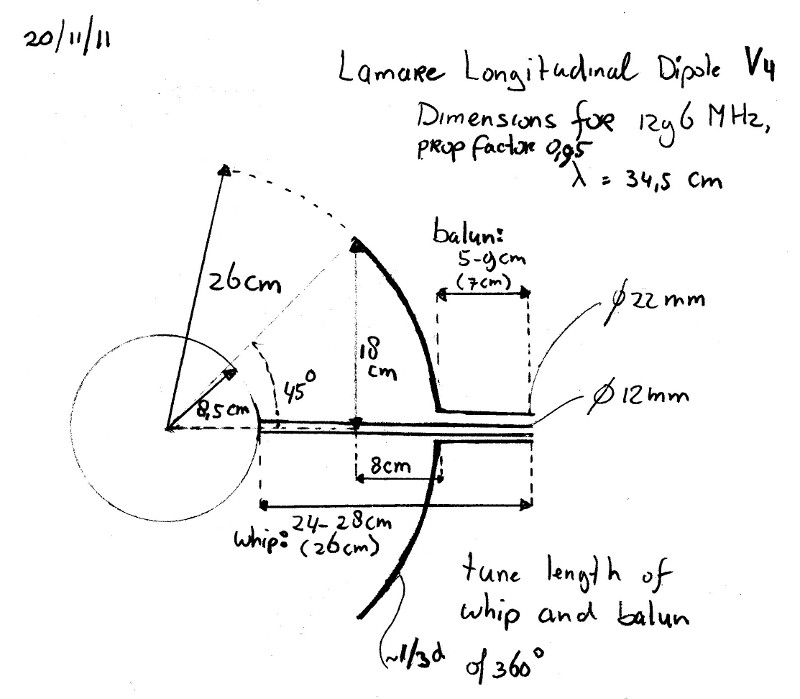 20/11/11
Lamare Longitudinal Dipole V4
Dimensions for 1296 MHz,
prop factor 0,95
λ = 34,5 cm
balun:
5-9cm
(7cm)
26cm
ø22mm
18
cm
45°
ø12mm
8,5cm
8cm
24-28cm
whip: (26cm)
tune length of
whip and balun
~1/3d of 360°